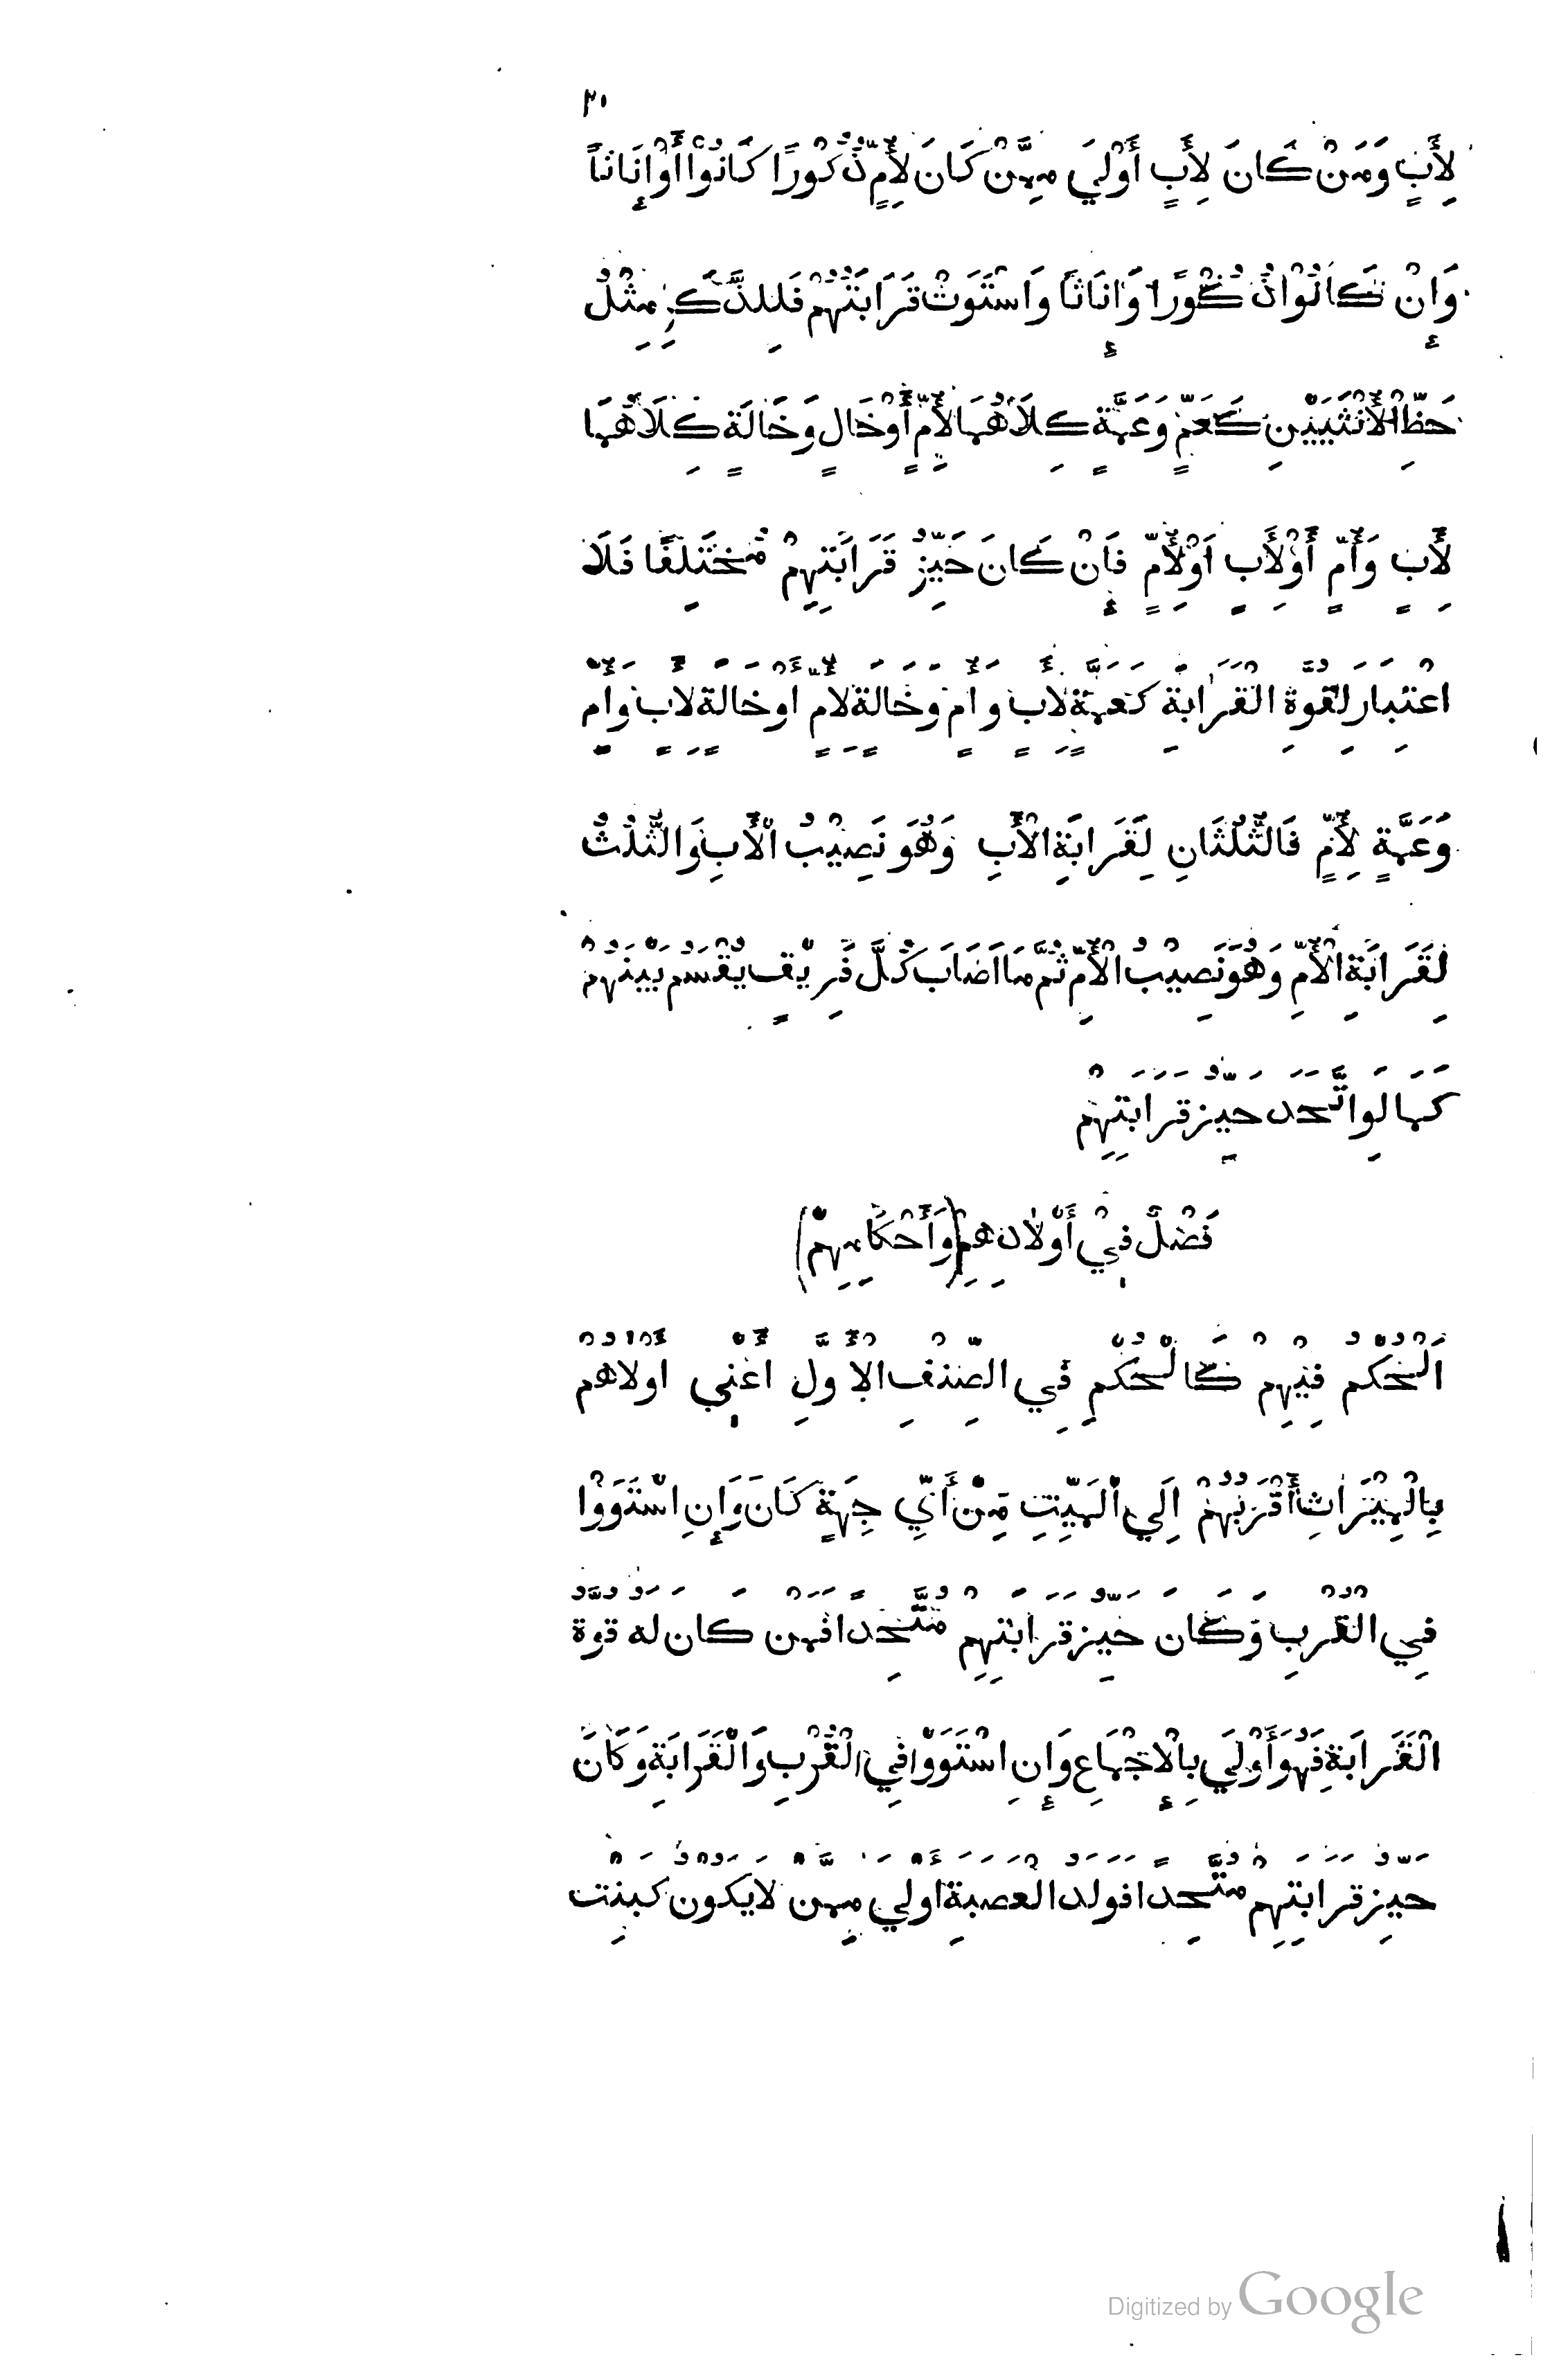 ٣١
لِأَبٍ وَمَنْ كَانَ لِأَبٍ أَوْلَي مِمَّنْ كَانَ لِأُمٍّ ذُكُوْرًا كَانُوْا أَوْ إِنَاثاً
وَإِنْ كَانُوْا ذُكُوْرًا وَإِنَاثاً وَاسْتَوَتْ قَرَابَتُهُمْ فَلِلذَّكَرِ مِثْلُ
حَظِّ الْأُنْثَيَيْنِ كَعَمٍّ وَعَمَّةٍ كِلَاهُمَا لِأُمٍّ أَوْ خَالٍ وَخَالَةٍ كِلَاهُمَا
لِأَبٍ وَأُمٍّ أَوْلِأَبٍ اَوْلِأُمٍّ فَإِنْ كَانَ حَيِّزُ قَرَابَتِهِمْ مُخْتَلِفًا فَلَا
اعْتِبَارَ لِقُوَّةِ الْقَرَابَةِ كَعَمَّةٍ لِأَبٍ وَأُمٍّ وَخَالَةٍ لِأُمٍّ أَوْخَالَةٍ لِأَبٍ وَأُمٍّ
وَعَمَّةٍ لِأُمٍّ فَالثُّلُثَانِ لِقَرَابَةِ الْأَبِ وَهُوَ نَصِيْبُ الْأَبِ وَالثُّلُثُ
لِقَرَابَةِ الْأُمِّ وَهُوَ نَصِيْبُ الْأُمِّ ثُمَّ مَا اَصَابَ كُلَّ فَرِيْقٍ يُقْسَمُ بَيْنَهُمْ
كَمَا لَوِ اتَّحَدَ حَيِّزُ قَرَابَتِهِمْ
فَصْلٌ فِيْ أَوْلَادِهِمْ (وَأَحْكَامِهِمْ)
اَلْحُكْمُ فِيْهِمْ كَالْحُكْمِ فِي الصِّنْفِ الْأَوَّلِ أَعْنِي أَوْلَاهُمْ
بِالْمِيْرَاثِ أَقْرَبُهُمْ اِلَي الْمَيِّتِ مِنْ أَيِّ جِهَةٍ كَانَ وَإِنِ اسْتَوَوْا
فِي الْقُرْبِ وَكَانَ حَيِّزُ قَرَابَتِهِمْ مُتَّحِدًا فَمَنْ كَانَ لَهُ قُوَّةُ
الْقَرَابَةِ فَهُوَ أَوْلَي بِالْإِجْمَاعِ وَإِنِ اسْتَوَوْا فِي الْقُرْبِ وَالْقَرَابَةِ وَكَانَ
حَيِّزُ قَرَابَتِهِمْ مُتَّحِدًا فَوَلَدُ الْعَصَبَةِ أَوْلَي مِمَّنْ لَايَكُوْنُ كَبِنْتِ
Digitized by Google